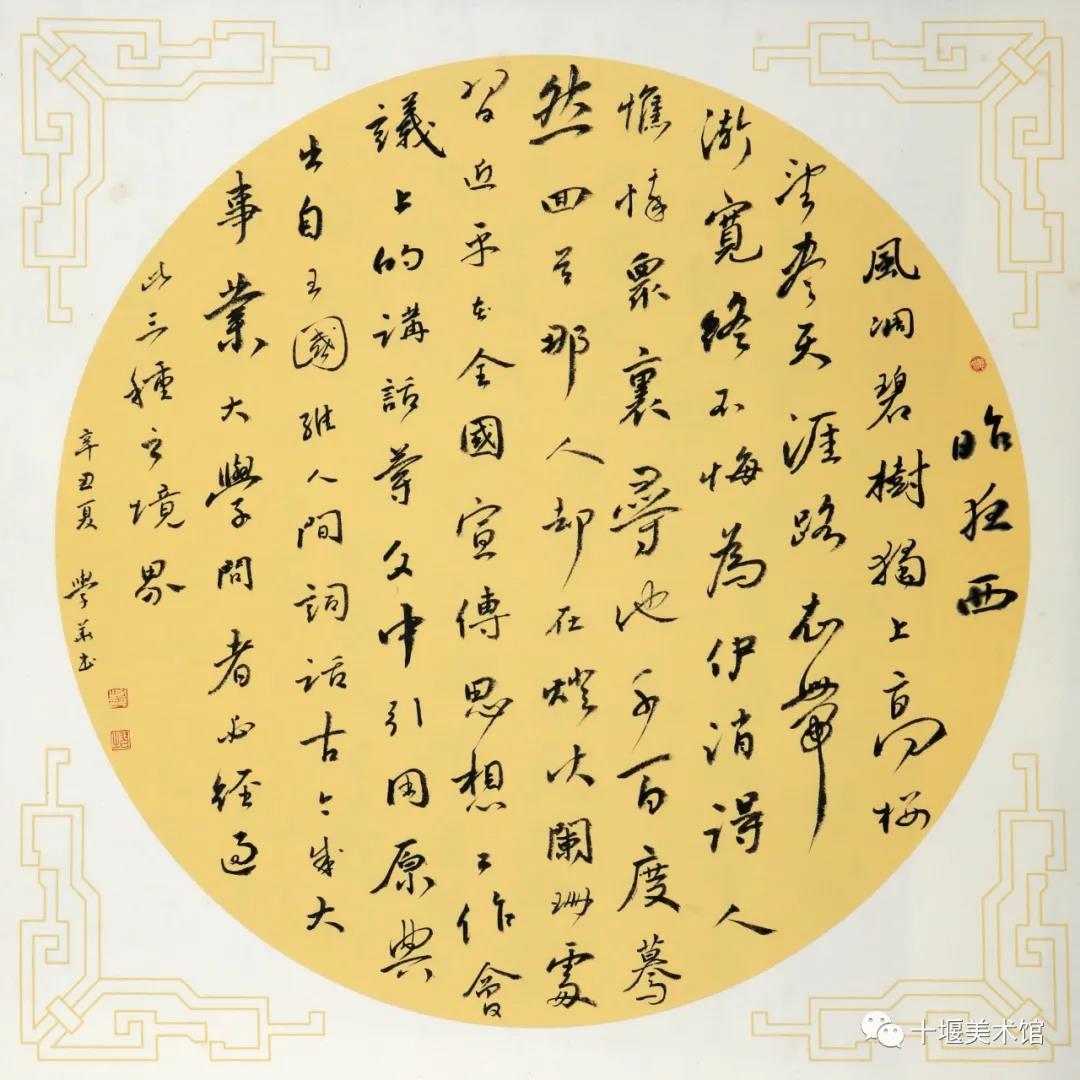 昨夜西
風凋碧樹獨上高楼
望盡天涯路衣帶
漸寬終不悔為伊消得人
憔悴眾裏尋他千百度驀
然回首那人却在燈火闌珊處
習近平在全國宣傳思想工作會
議上的講話等文中引用原典
出自王國維人间詞话古今成大
事業大學問者必經過
此三種之境界
辛丑夏 學 书
十堰美术馆